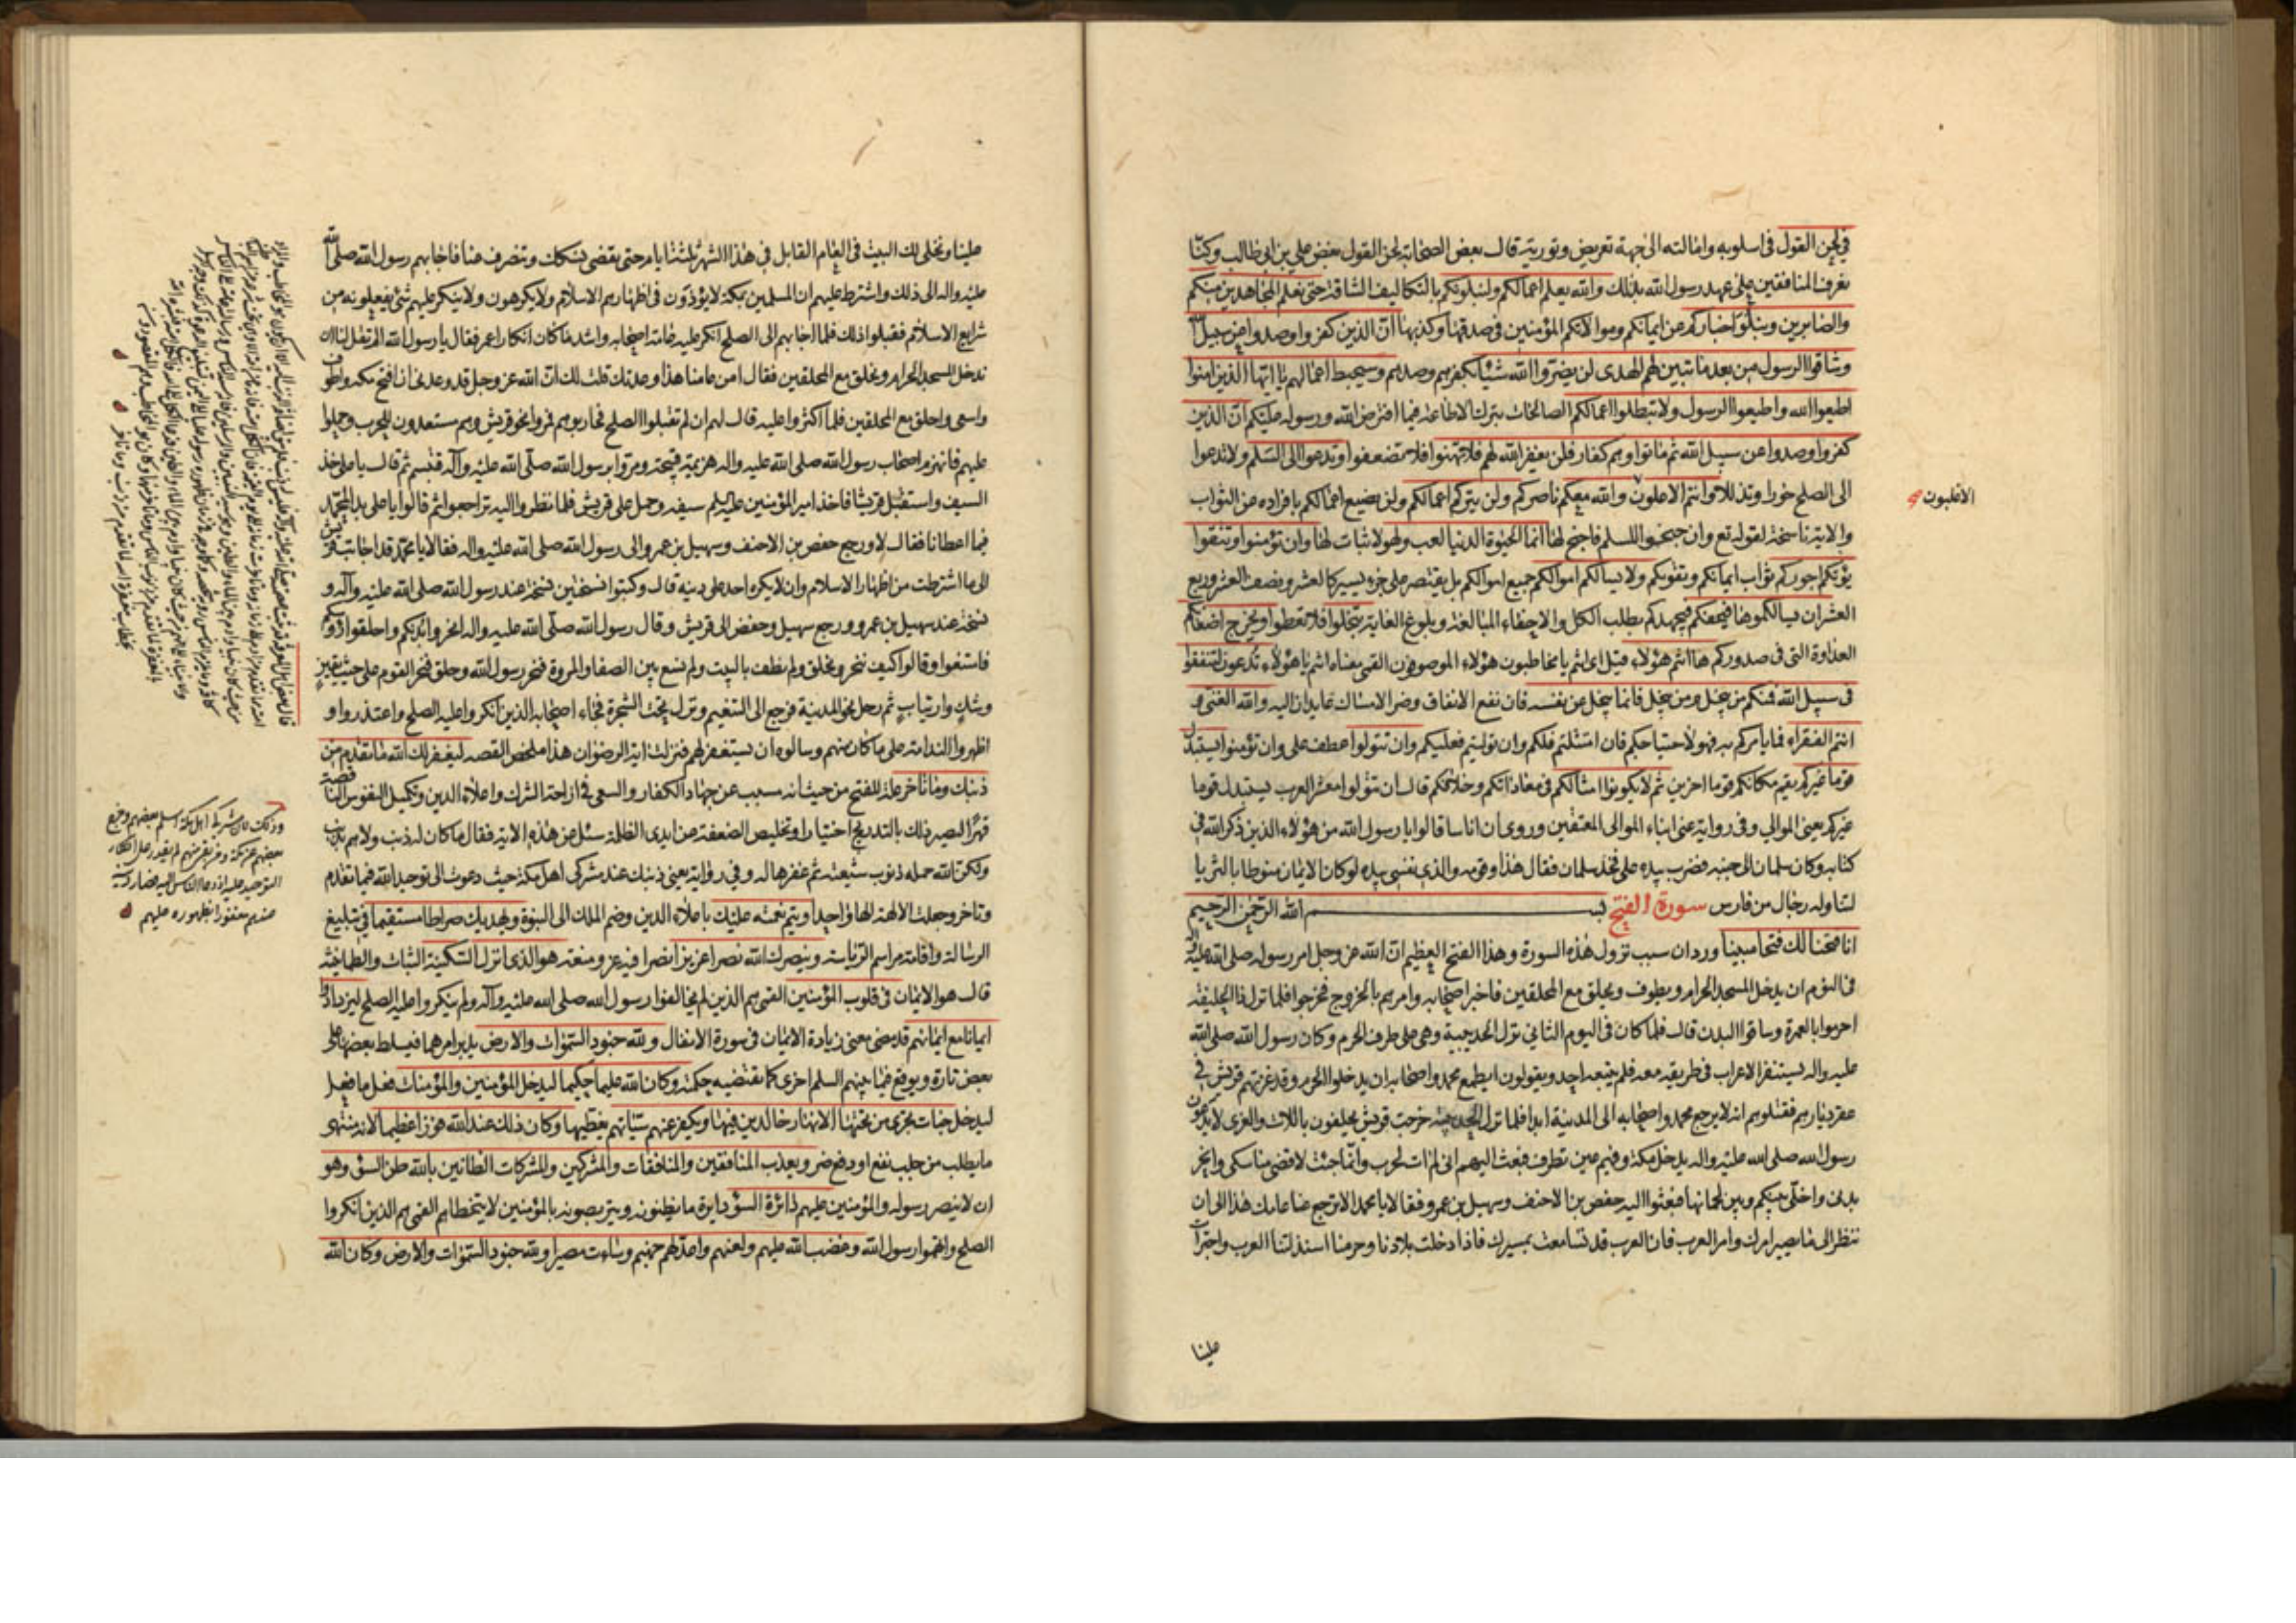 في لحن القول في اسلوبه وامالته الى جهة تعريض وتورية قال بعض الصحابة لحن القول بغض علي بن ابي طالب وكنّا
نعرف المنافقين على عهد رسول الله بذلك والله يعلم اعمالكم ولنبلونكم بالتكاليف الشاقة حتى نعلم المجاهدين منكم
والصابرين ونبلوا اخباركم عن ايمانكم وموالاتكم المؤمنين في صدقها وكذبها انّ الذين كفروا وصدوا عن سبيل الله
وشاقوا الرسول من بعد ما تبين لهم الهدى لن يضروا الله شيئا بكفرهم وصدهم وسيحبط اعمالهم يا ايها الذين امنوا
اطيعوا الله واطيعوا الرسول ولا تبطلوا اعمالكم الصالحات بترك الاطاعة فيما افترض الله ورسوله عليكم انّ الذين
كفروا وصدوا عن سبيل الله ثم ماتوا وهم كفار فلن يغفر الله لهم فلا تهنوا فلا تضعفوا وتدعوا الى السلم ولا تدعوا
الى الصلح خورا وتذللا وانتم الاعلون والله معكم ناصركم ولن يتركم اعمالكم ولن يضيع اعمالكم بافراده من الثواب
الاغلبون
والاية ناسخة لقوله تع وان جنحوا للسلم فاجنح لها انما الحيوة الدنيا لعب ولهو لا ثبات لها وان تؤمنوا وتتقوا
يؤتكم اجوركم ثواب ايمانكم وتقويكم ولا يسالكم اموالكم جميع اموالكم بل يقتصر على جزء يسير كالعشر ونصف العشر وربع
العشر ان يسالكموها فيحفكم فيجهدكم بطلب الكل والاحفاء المبالغة وبلوغ الغاية تبخلوا فلا تعطوا ويخرج اضغانكم
العداوة التى فى صدوركم ها انتم هؤلاء قيل اى انتم يا مخاطبون هؤلاء الموصوفون القمى معناه انتم يا هؤلاء تدعون لتنفقوا
فى سبيل الله فمنكم من يبخل ومن يبخل فانما يبخل عن نفسه فان نفع الانفاق وضر الامساك عايدان اليه والله الغنى و
انتم الفقراء فما يامركم به فهو لاحتياجكم فان امتثلتم فلكم وان توليتم فعليكم وان تتولوا عطف على وان تؤمنوا يستبدل
قوما غيركم يقيم مكانكم قوما اخرين ثم لا يكونوا امثالكم فى معاداتكم وخلافكم قال ان تتولوا معشر العرب يستبدل قوما
غيركم يعنى الموالى وفى رواية عنى ابناء الموالى المعتقين وروى ان اناسا قالوا يا رسول الله من هؤلاء الذين ذكر الله فى
كتابه وكان سلمان الى جنبه فضرب بيده على فخذ سلمان فقال هذا وقومه والذى نفسى بيده لو كان الايمان منوطا بالثريا
لتناوله رجال من فارس سورة الفتح بسم الله الرحمن الرحيم
انا فتحنا لك فتحا مبينا ورد ان سبب نزول هذه السورة وهذا الفتح العظيم ان الله عز وجل امر رسوله صلى الله عليه واله
فى النوم ان يدخل المسجد الحرام ويطوف ويحلق مع المحلقين فاخبر اصحابه وامرهم بالخروج فخرجوا فلما نزل ذا الحليفة
احرموا بالعمرة وساقوا البدن قال فلما كان فى اليوم الثانى نزل الحديبية وهى على طرف الحرم وكان رسول الله صلى الله
عليه واله يستنفر الاعراب فى طريقه معه فلم يتبعه احد ويقولون ايطمع محمد واصحابه ان يدخلوا الحرم وقد غزتهم قريش فى
عقر ديارهم فقتلوهم انه لا يرجع محمد واصحابه الى المدينة ابدا فلما نزل الحديبية خرجت قريش يحلفون باللات والعزى لا يدعون
رسول الله صلى الله عليه واله يدخل مكة وفيهم عين تطرف فبعث اليهم انى لم ات لحرب وانما جئت لاقضى مناسكى وانحر
بدنى واخلى بينكم وبين لحمانها فبعثوا اليه حفص بن الاحنف وسهيل بن عمرو فقالا يا محمد الا ترجع عنا عامك هذا الى ان
ننظر الى ما يصير امرك وامر العرب فان العرب قد تسامعت بمسيرك فاذا دخلت بلادنا وحرمنا استذلتنا العرب واجترات
علينا
علينا ونخلى لك البيت فى العام القابل فى هذا الشهر ثلثة ايام حتى تقضى نسكك وتنصرف عنا فاجابهم رسول الله صلى الله
عليه واله الى ذلك واشترط عليهم ان المسلمين بمكة لا يؤذون فى اظهارهم الاسلام ولا يكرهون ولا ينكر عليهم شئ يفعلونه من
شرايع الاسلام فقبلوا ذلك فلما اجابهم الى الصلح انكر عليه عامة اصحابه واشد ما كان انكارا عمر فقال يا رسول الله الم تقل لنا ان
ندخل المسجد الحرام ونحلق مع المحلقين فقال امن عامنا هذا وعدتك قلت لك ان الله عز وجل قد وعدنى ان افتح مكة واطوف
واسعى واحلق مع المحلقين فلما اكثروا عليه قال لهم ان لم تقبلوا الصلح فحاربوهم فمروا نحو قريش وهم مستعدون للحرب وحملوا
عليهم فانهزم اصحاب رسول الله صلى الله عليه واله هزيمة قبيحة ومروا برسول الله صلى الله عليه وآله فتبسم ثم قال يا على خذ
السيف واستقبل قريشا فاخذ امير المؤمنين عليه السلم سيفه وحمل على قريش فلما نظروا اليه تراجعوا ثم قالوا يا على بدا لمحمد
فيما اعطانا فقال لا ورجع حفص بن الاحنف وسهيل بن عمرو الى رسول الله صلى الله عليه واله فقالا يا محمد قد اجابت قريش
الى ما اشترطت من اظهار الاسلام وان لا يكره احد على دينه قال وكتبوا نسختين نسخة عند رسول الله صلى الله عليه وآله و
نسخة عند سهيل بن عمرو ورجع سهيل وحفص الى قريش وقال رسول الله صلى الله عليه واله انحروا بدنكم واحلقوا رؤسكم
فامتنعوا وقالوا كيف ننحر ونحلق ولم نطف بالبيت ولم نسع بين الصفا والمروة فنحر رسول الله وحلق فنحر القوم على حيث يقين
وشك وارتياب ثم رحل نحو المدينة فرجع الى التنعيم ونزل تحت الشجرة فجاء اصحابه الذين انكروا عليه الصلح واعتذروا و
اظهروا الندامة على ما كان منهم وسالوه ان يستغفر لهم فنزلت اية الرضوان هذا ملخص القصة ليغفر لك الله ما تقدم من
ذنبك وما تاخر علة للفتح من حيث انه مسبب عن جهاد الكفار والسعى فى ازاحة الشرك واعلاء الدين وتكميل النفوس الناقصة
قهرا ليصير ذلك بالتدريج اختيارا وتخليص الضعفة من ايدى الظلمة سئل عن هذه الاية فقال ما كان له ذنب ولا هم بذنب
ولكن الله حمله ذنوب شيعته ثم غفرها له وفى رواية يعنى ذنبك عند مشركى اهل مكة حيث دعوت الى توحيد الله فيما تقدم
وتاخر وجعلت الالهة الها واحدا ويتم نعمته عليك باعلاء الدين وضم الملك الى النبوة ويهديك صراطا مستقيما فى تبليغ
الرسالة واقامة مراسم الرياسة وينصرك الله نصرا عزيزا نصرا فيه عز ومنعة هو الذى انزل السكينة الثبات والطمانينة
قال هو الايمان فى قلوب المؤمنين القمى هم الذين لم يخالفوا رسول الله صلى الله عليه وآله ولم ينكروا عليه الصلح ليزدادوا
ايمانا مع ايمانهم قد مضى معنى زيادة الايمان فى سورة الانفال ولله جنود السموات والارض يدبر امرهما فيسلط بعضها على
بعض تارة ويوقع فيما بينهم السلم اخرى كما تقتضيه حكمته وكان الله عليما حكيما ليدخل المؤمنين والمؤمنات فعل ما فعل
ليدخل جنات تجرى من تحتها الانهار خالدين فيها ويكفر عنهم سيئاتهم يغطيها وكان ذلك عند الله فوزا عظيما لانه منتهى
ما يطلب من جلب نفع او دفع ضر ويعذب المنافقين والمنافقات والمشركين والمشركات الظانين بالله ظن السوء وهو
ان لا ينصر رسوله والمؤمنين عليهم دائرة السوء دايرة ما يظنونه ويتربصونه بالمؤمنين لا يتخطاهم القمى هم الذين انكروا
الصلح واتهموا رسول الله وغضب الله عليهم ولعنهم واعد لهم جهنم وساءت مصيرا ولله جنود السموات والارض وكان الله
وذلك لان مشركى اهل مكة اسلم بعضهم وخرج
بعضهم عن مكة ومن بقى منهم لم يقدر على انكار
التوحيد عليه اذا دعا الناس اليه فصار ذنبه
عندهم مغفورا بظهوره عليهم